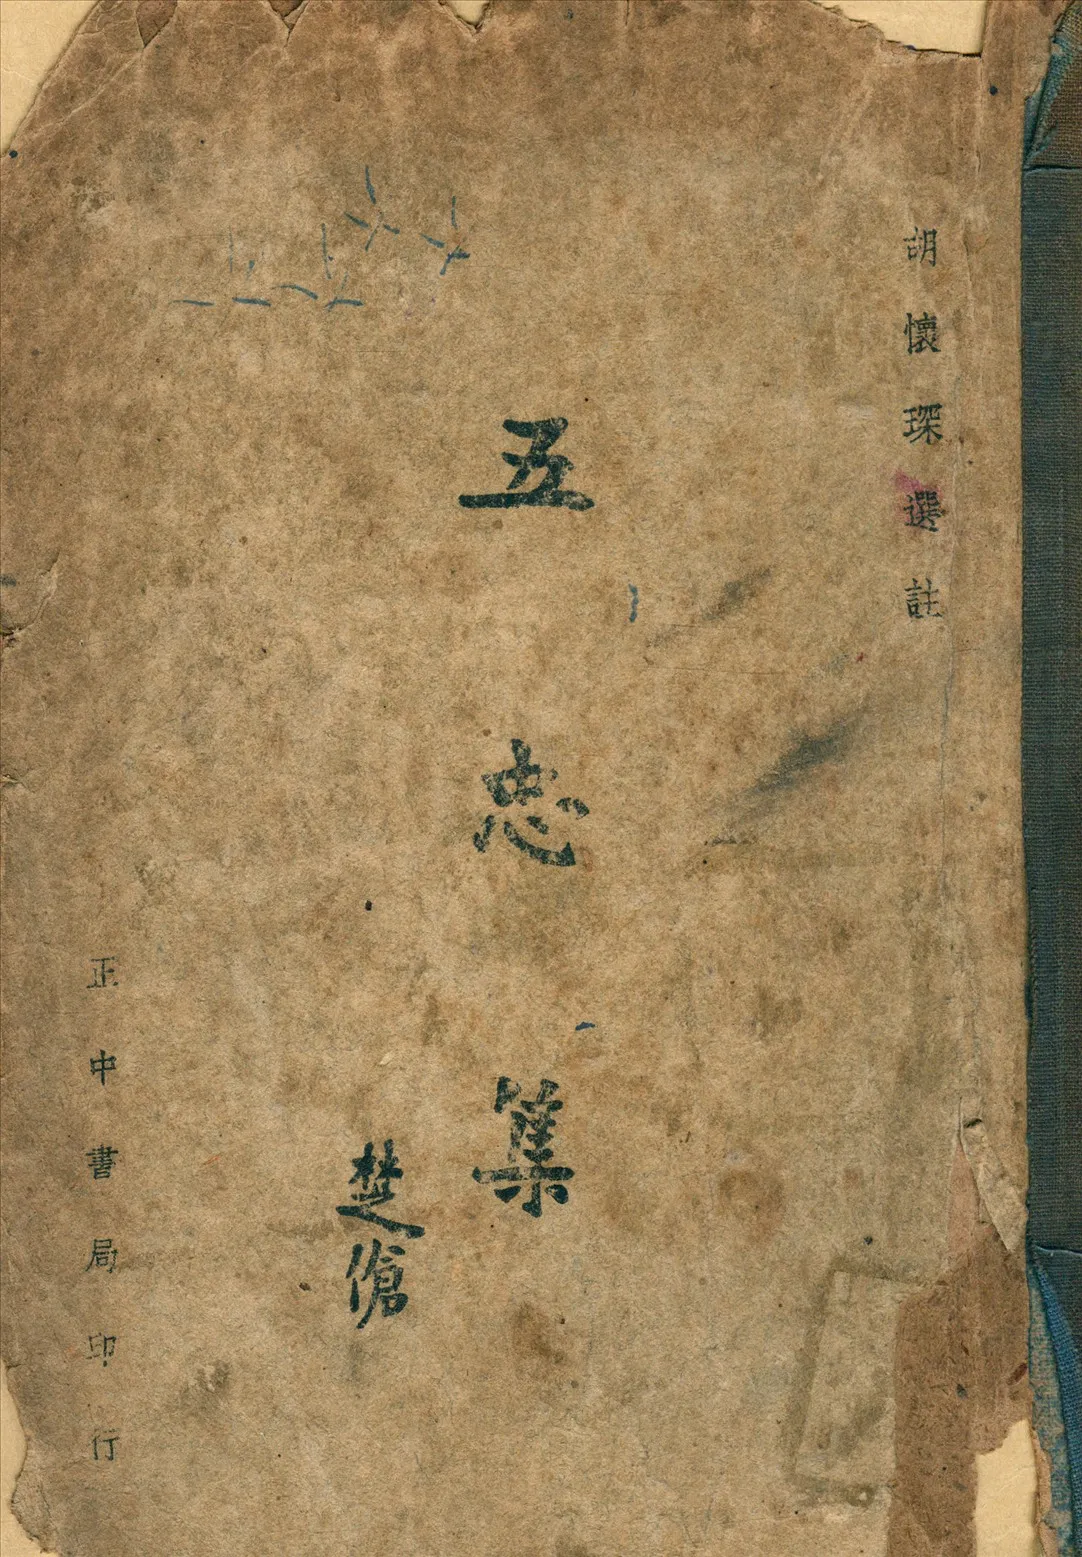 胡懷琛選註
五忠集
楚傖
正中書局印行